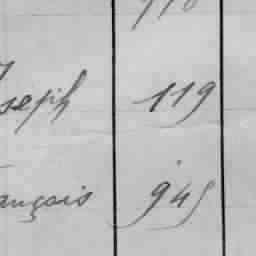 Joseph 119
ançois 945